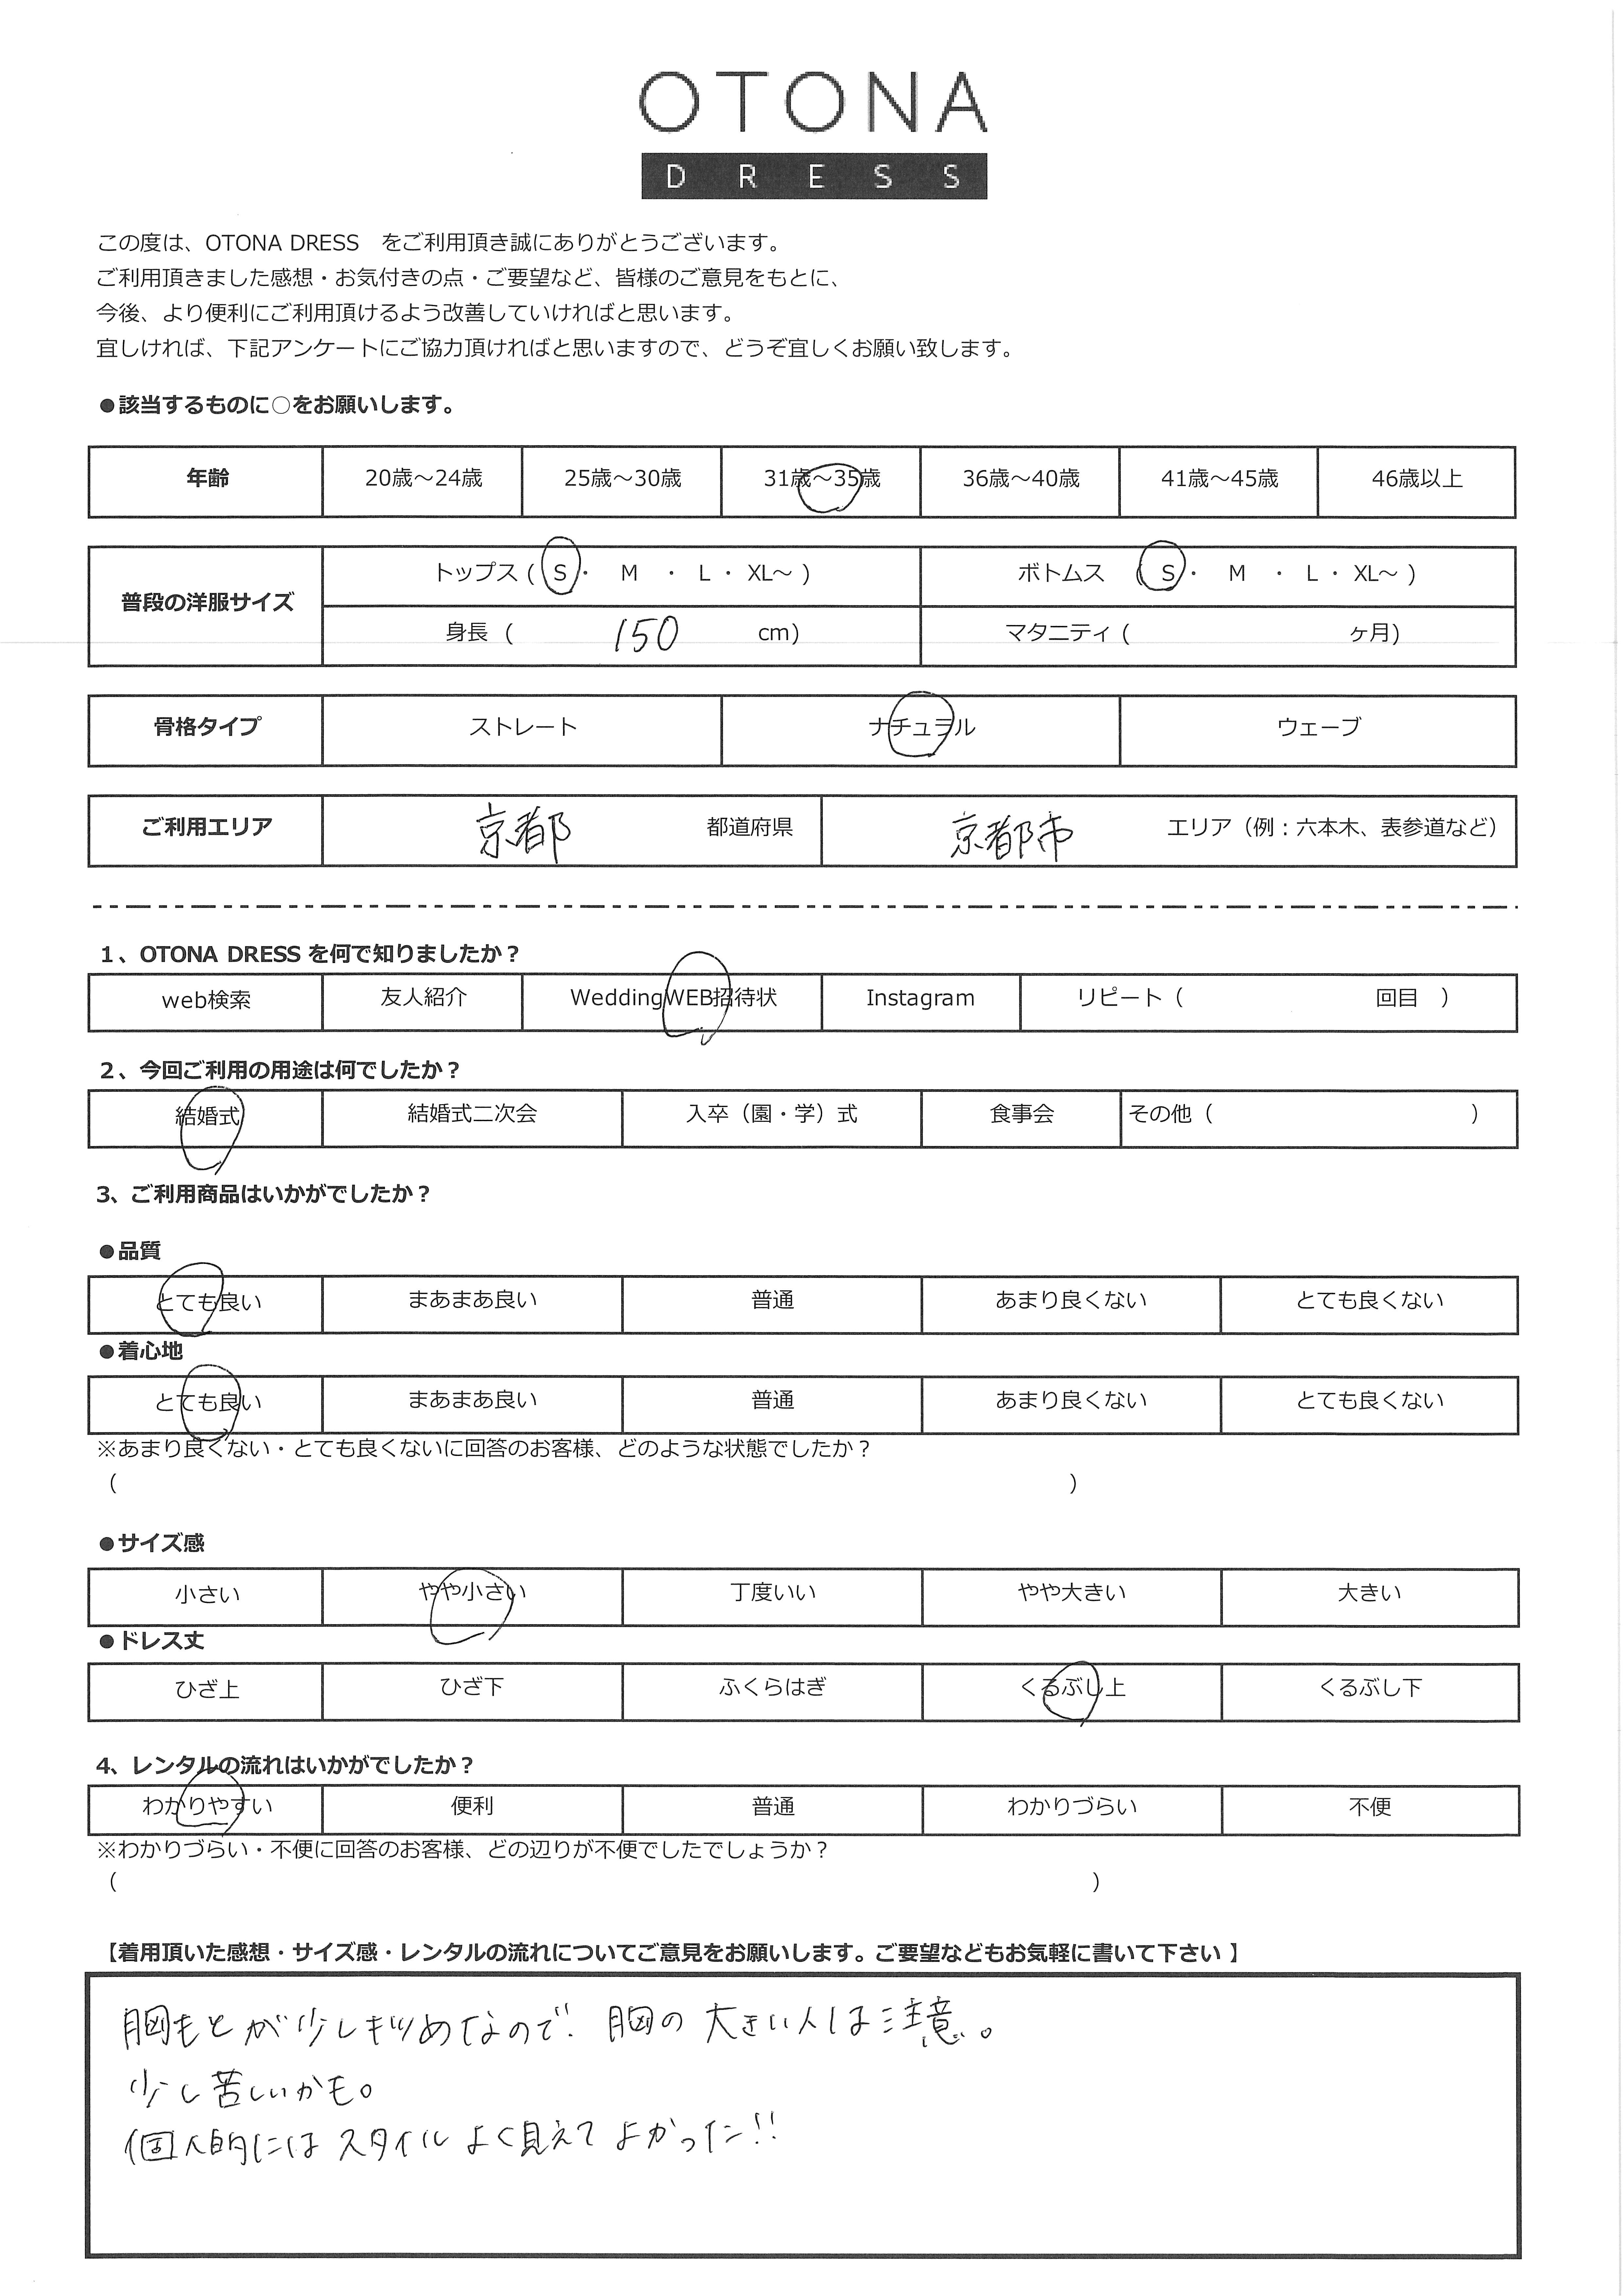 OTONA
DRESS
この度は、OTONA DRESS　をご利用頂き誠にありがとうございます。
ご利用頂きました感想・お気付きの点・ご要望など、皆様のご意見をもとに、
今後、より便利にご利用頂けるよう改善していければと思います。
宜しければ、下記アンケートにご協力頂ければと思いますので、どうぞ宜しくお願い致します。
●該当するものに○をお願いします。
年齢 20歳～24歳 25歳～30歳 31歳～35歳 36歳～40歳 41歳～45歳 46歳以上
普段の洋服サイズ トップス ( S ・ M ・ L ・ XL～ ) ボトムス ( S ・ M ・ L ・ XL～ )
身長 ( 150 cm) マタニティ ( ヶ月)
骨格タイプ ストレート ナチュラル ウェーブ
ご利用エリア 京都 都道府県 京都市 エリア（例：六本木、表参道など）
1、OTONA DRESS を何で知りましたか？
web検索 友人紹介 WeddingWEB招待状 Instagram リピート（ 回目 ）
2、今回ご利用の用途は何でしたか？
結婚式 結婚式二次会 入卒（園・学）式 食事会 その他（ ）
3、ご利用商品はいかがでしたか？
●品質
とても良い まあまあ良い 普通 あまり良くない とても良くない
●着心地
とても良い まあまあ良い 普通 あまり良くない とても良くない
※あまり良くない・とても良くないに回答のお客様、どのような状態でしたか？
（ ）
●サイズ感
小さい やや小さい 丁度いい やや大きい 大きい
●ドレス丈
ひざ上 ひざ下 ふくらはぎ くるぶし上 くるぶし下
4、レンタルの流れはいかがでしたか？
わかりやすい 便利 普通 わかりづらい 不便
※わかりづらい・不便に回答のお客様、どの辺りが不便でしたでしょうか？
（ ）
【着用頂いた感想・サイズ感・レンタルの流れについてご意見をお願いします。ご要望などもお気軽に書いて下さい 】
胸もとが少しキツめなので、胸の大きい人は注意。
少し苦しいかも。
個人的にはスタイルよく見えてよかった!!